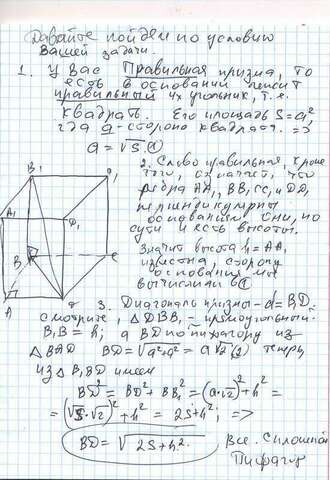 Давайте пойдем по условию
Вашей задачи.
1. У Вас Правильная призма, то
есть в основании лежит
правильный 4х угольник, т.е.
квадрать. Его площадь S=a²,
где a - сторона квадрата. =>
a = √S. ①
2. Слово правильная, кроме
того, означает, что
ребра AA₁, BB₁, CC₁ и DD₁
перпендикулярны
основанию они, по
сути и есть высоты.
Значит высота h = AA₁
известна, сторону
основания мы
вычислили в ①
B₁
C₁
A₁
D₁
B
C
A
3. Диагональ призмы - d = B₁D.
смотрите, △DBB₁ - прямоугольный.
B₁B = h; а BD по пифагору из
△BAD BD = √a²+a² = a√2 ② теперь
из △B₁BD имеем
B₁D² = BD² + BB₁² = (a√2)² + h² =
= (√S·√2)² + h² = 2S + h²; =>
B₁D = √2S + h².
Все. Сплошной
Пифагор